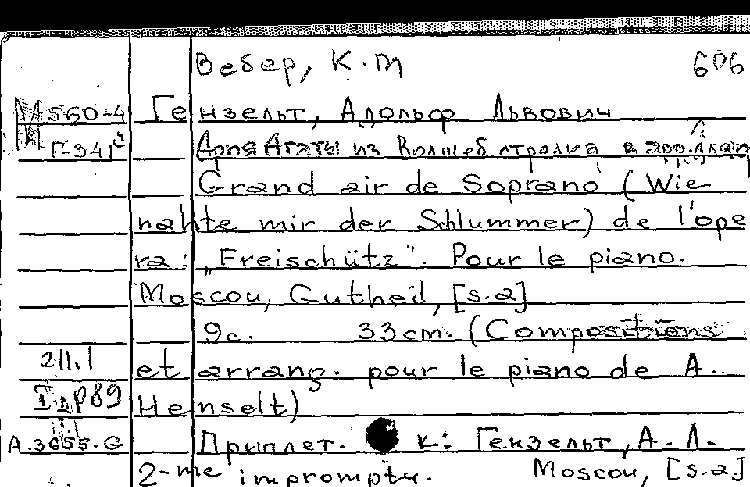 Вебер, К.М 606
М560-4 Гензельт, Адольф Львович
Г-341 Ария Агаты из Волшеб стрелка в
Grand air de Soprano (Wie
nahte mir der Schlummer) de l'ope
ra: „Freischütz". Pour le piano.
Moscou, Gutheil, [s.a]
9c. 33cm. (Compositions
2/1.1 et arrang. pour le piano de A.
Henselt)
А.3655.G Приплет. к: Гензельт, А.Л.
2-me impromptu. Moscou, [s.a.]